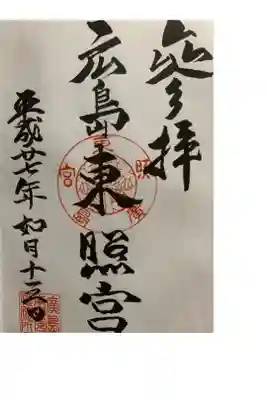 参拝
広島東照宮
平成廿七年 如月十三日